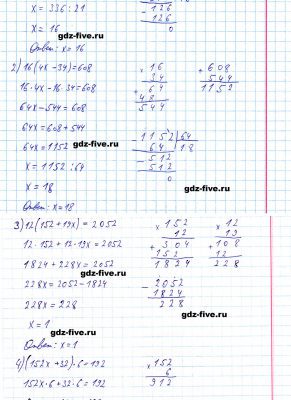 x = 336 : 21
x = 16
Ответ: x = 16
- 126
126
0
gdz-five.ru
2) 16(4x - 34) = 608
16 · 4x - 16 · 34 = 608
64x - 544 = 608
64x = 608 + 544
64x = 1152
x = 1152 : 64
x = 18
Ответ: x = 18
× 16
34
+ 64
48
544
+ 608
544
1152
- 1152 | 64
64 | 18
- 512
512
0
gdz-five.ru
gdz-five.ru
gdz-five.ru
3) 12(152 + 19x) = 2052
12 · 152 + 12 · 19x = 2052
1824 + 228x = 2052
228x = 2052 - 1824
228x = 228
x = 1
Ответ: x = 1
× 152
12
+ 304
152
1824
× 12
19
+ 108
12
228
- 2052
1824
228
gdz-five.ru
gdz-five.ru
gdz-five.ru
gdz-five.ru
4) (152x + 32) · 6 = 192
152x · 6 + 32 · 6 = 192
× 152
6
912